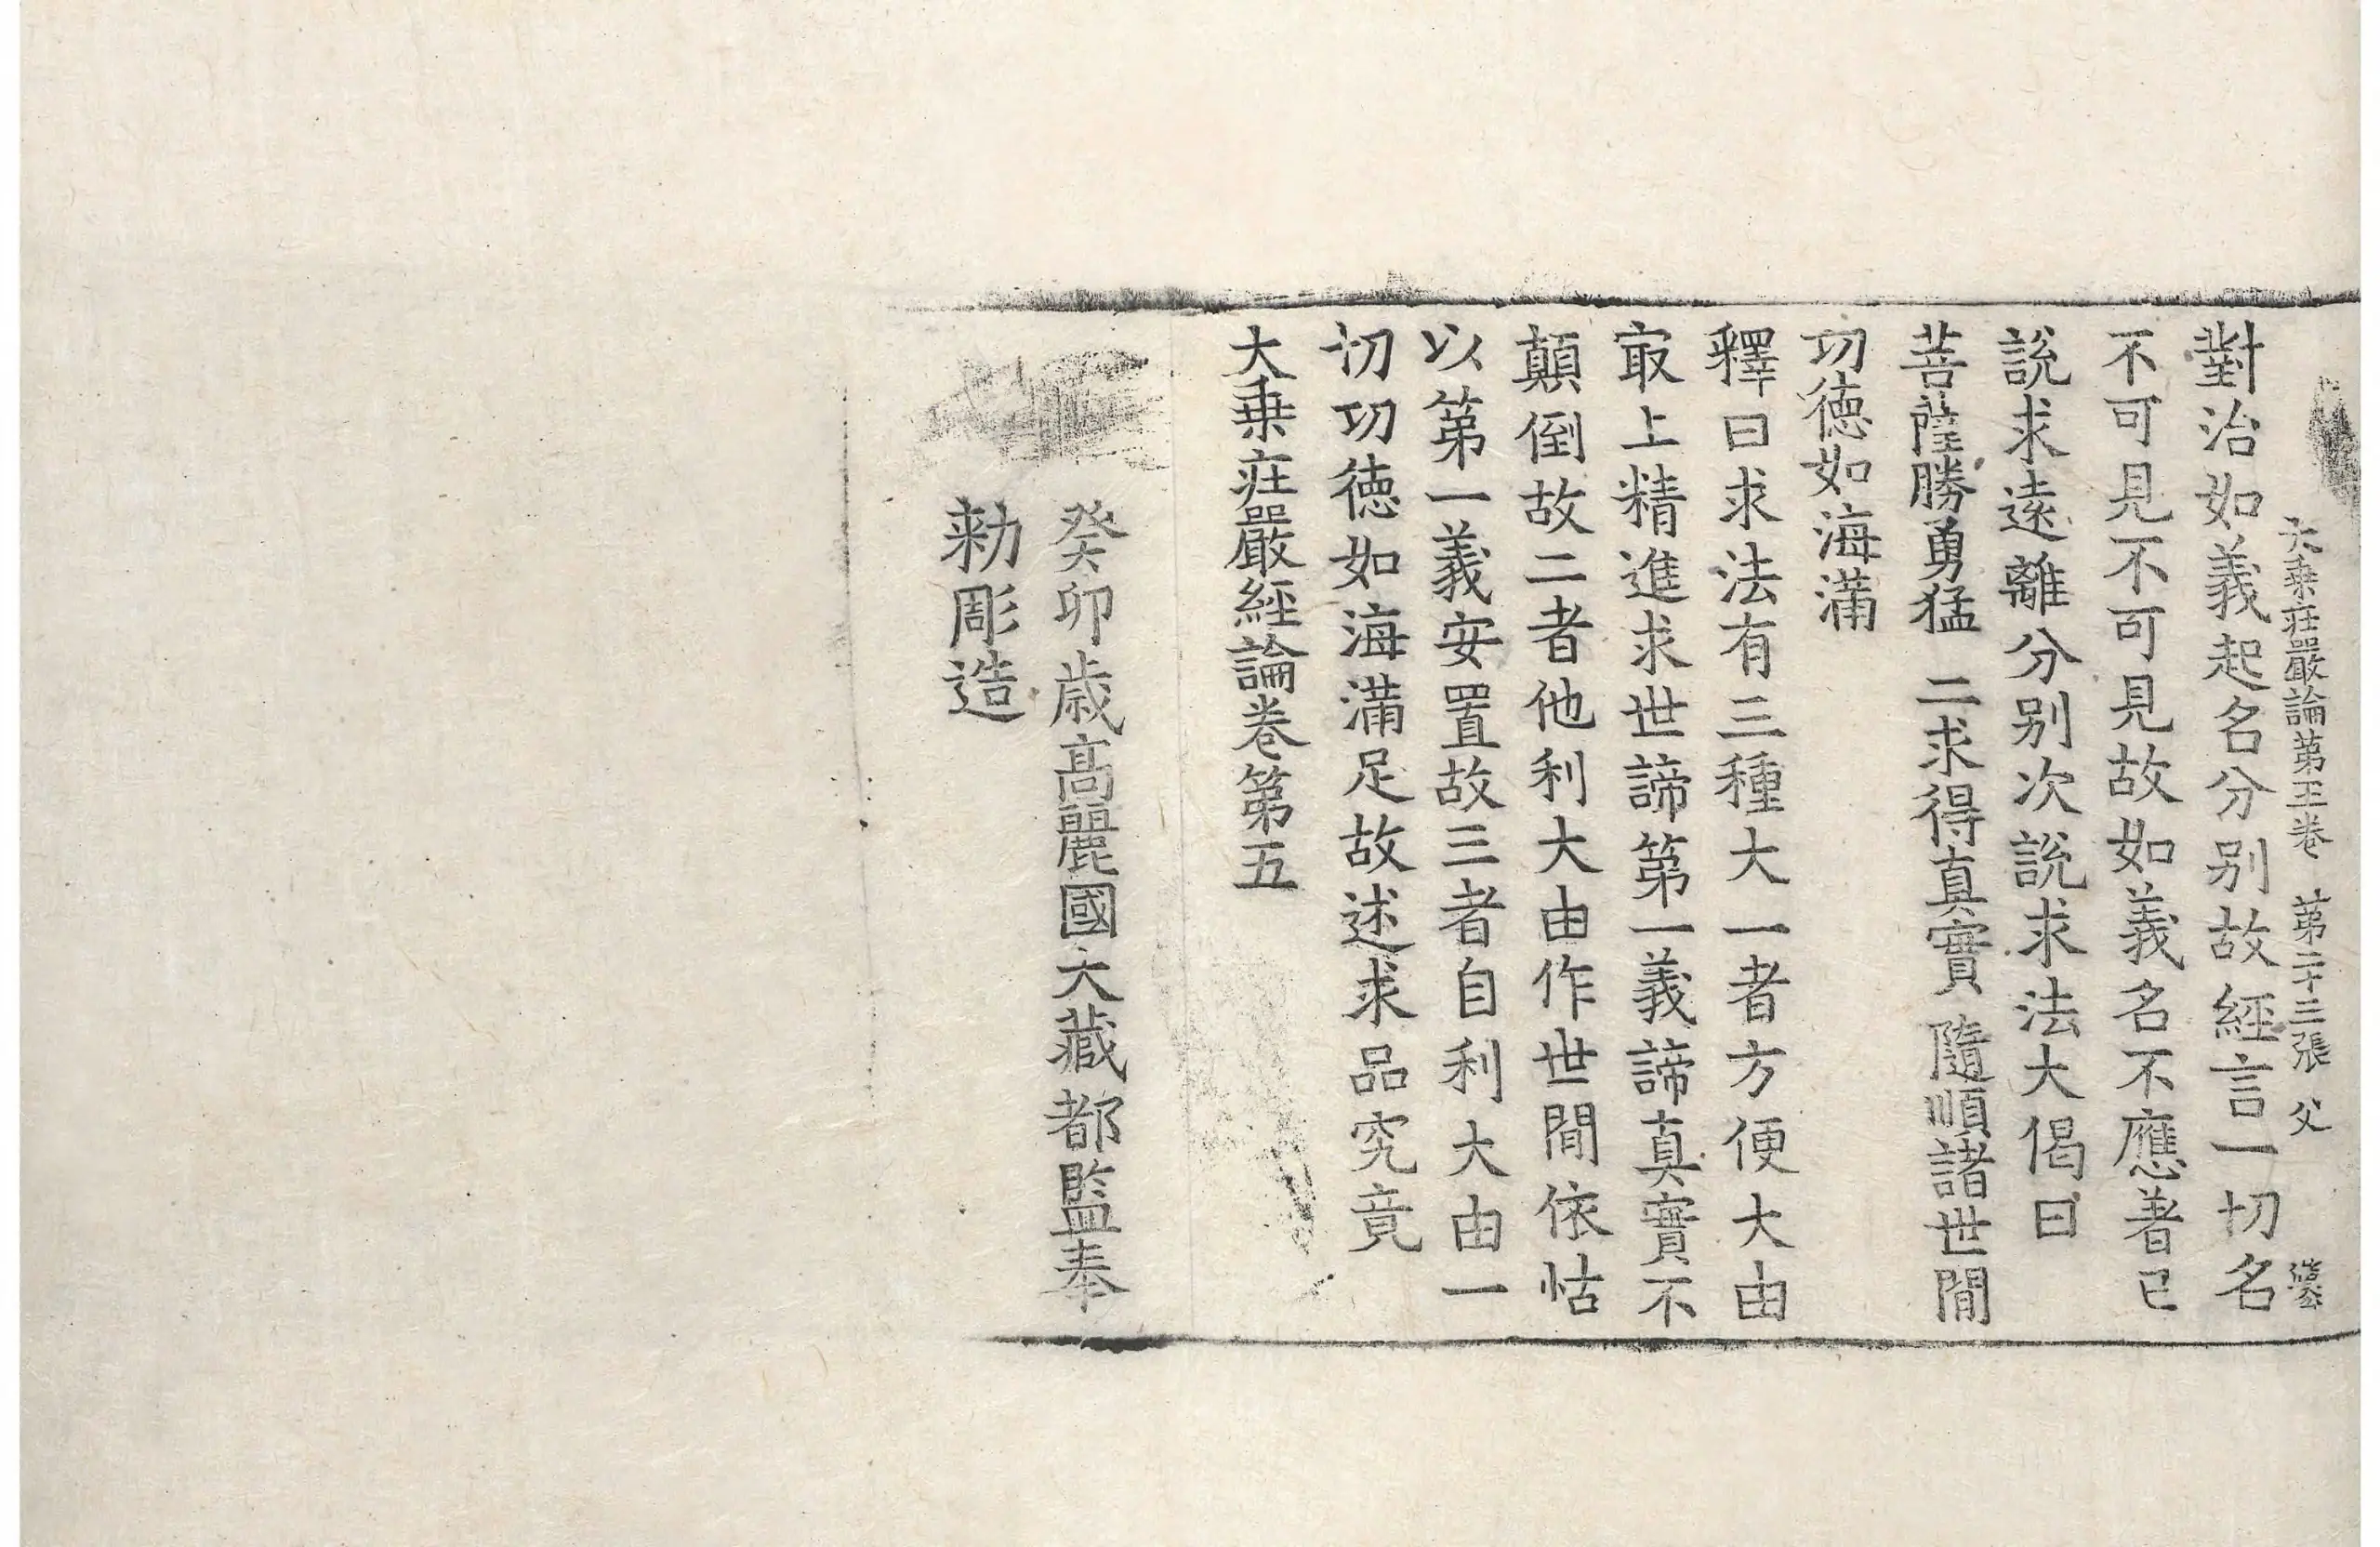 大乗莊嚴論第五卷 第二十三張 父
對治如義起名分别故經言一切名
不可見不可見故如義名不應著已
說求遠離分别次說求法大偈曰
菩薩勝勇猛 二求得真實 隨順諸世間
功德如海滿
釋曰求法有三種大一者方便大由
㝡上精進求世諦第一義諦真實不
顛倒故二者他利大由作世間依怙
以第一義安置故三者自利大由一
切功德如海滿足故述求品究竟
大乗莊嚴經論卷第五
癸卯歳高麗國大藏都監奉
勅彫造